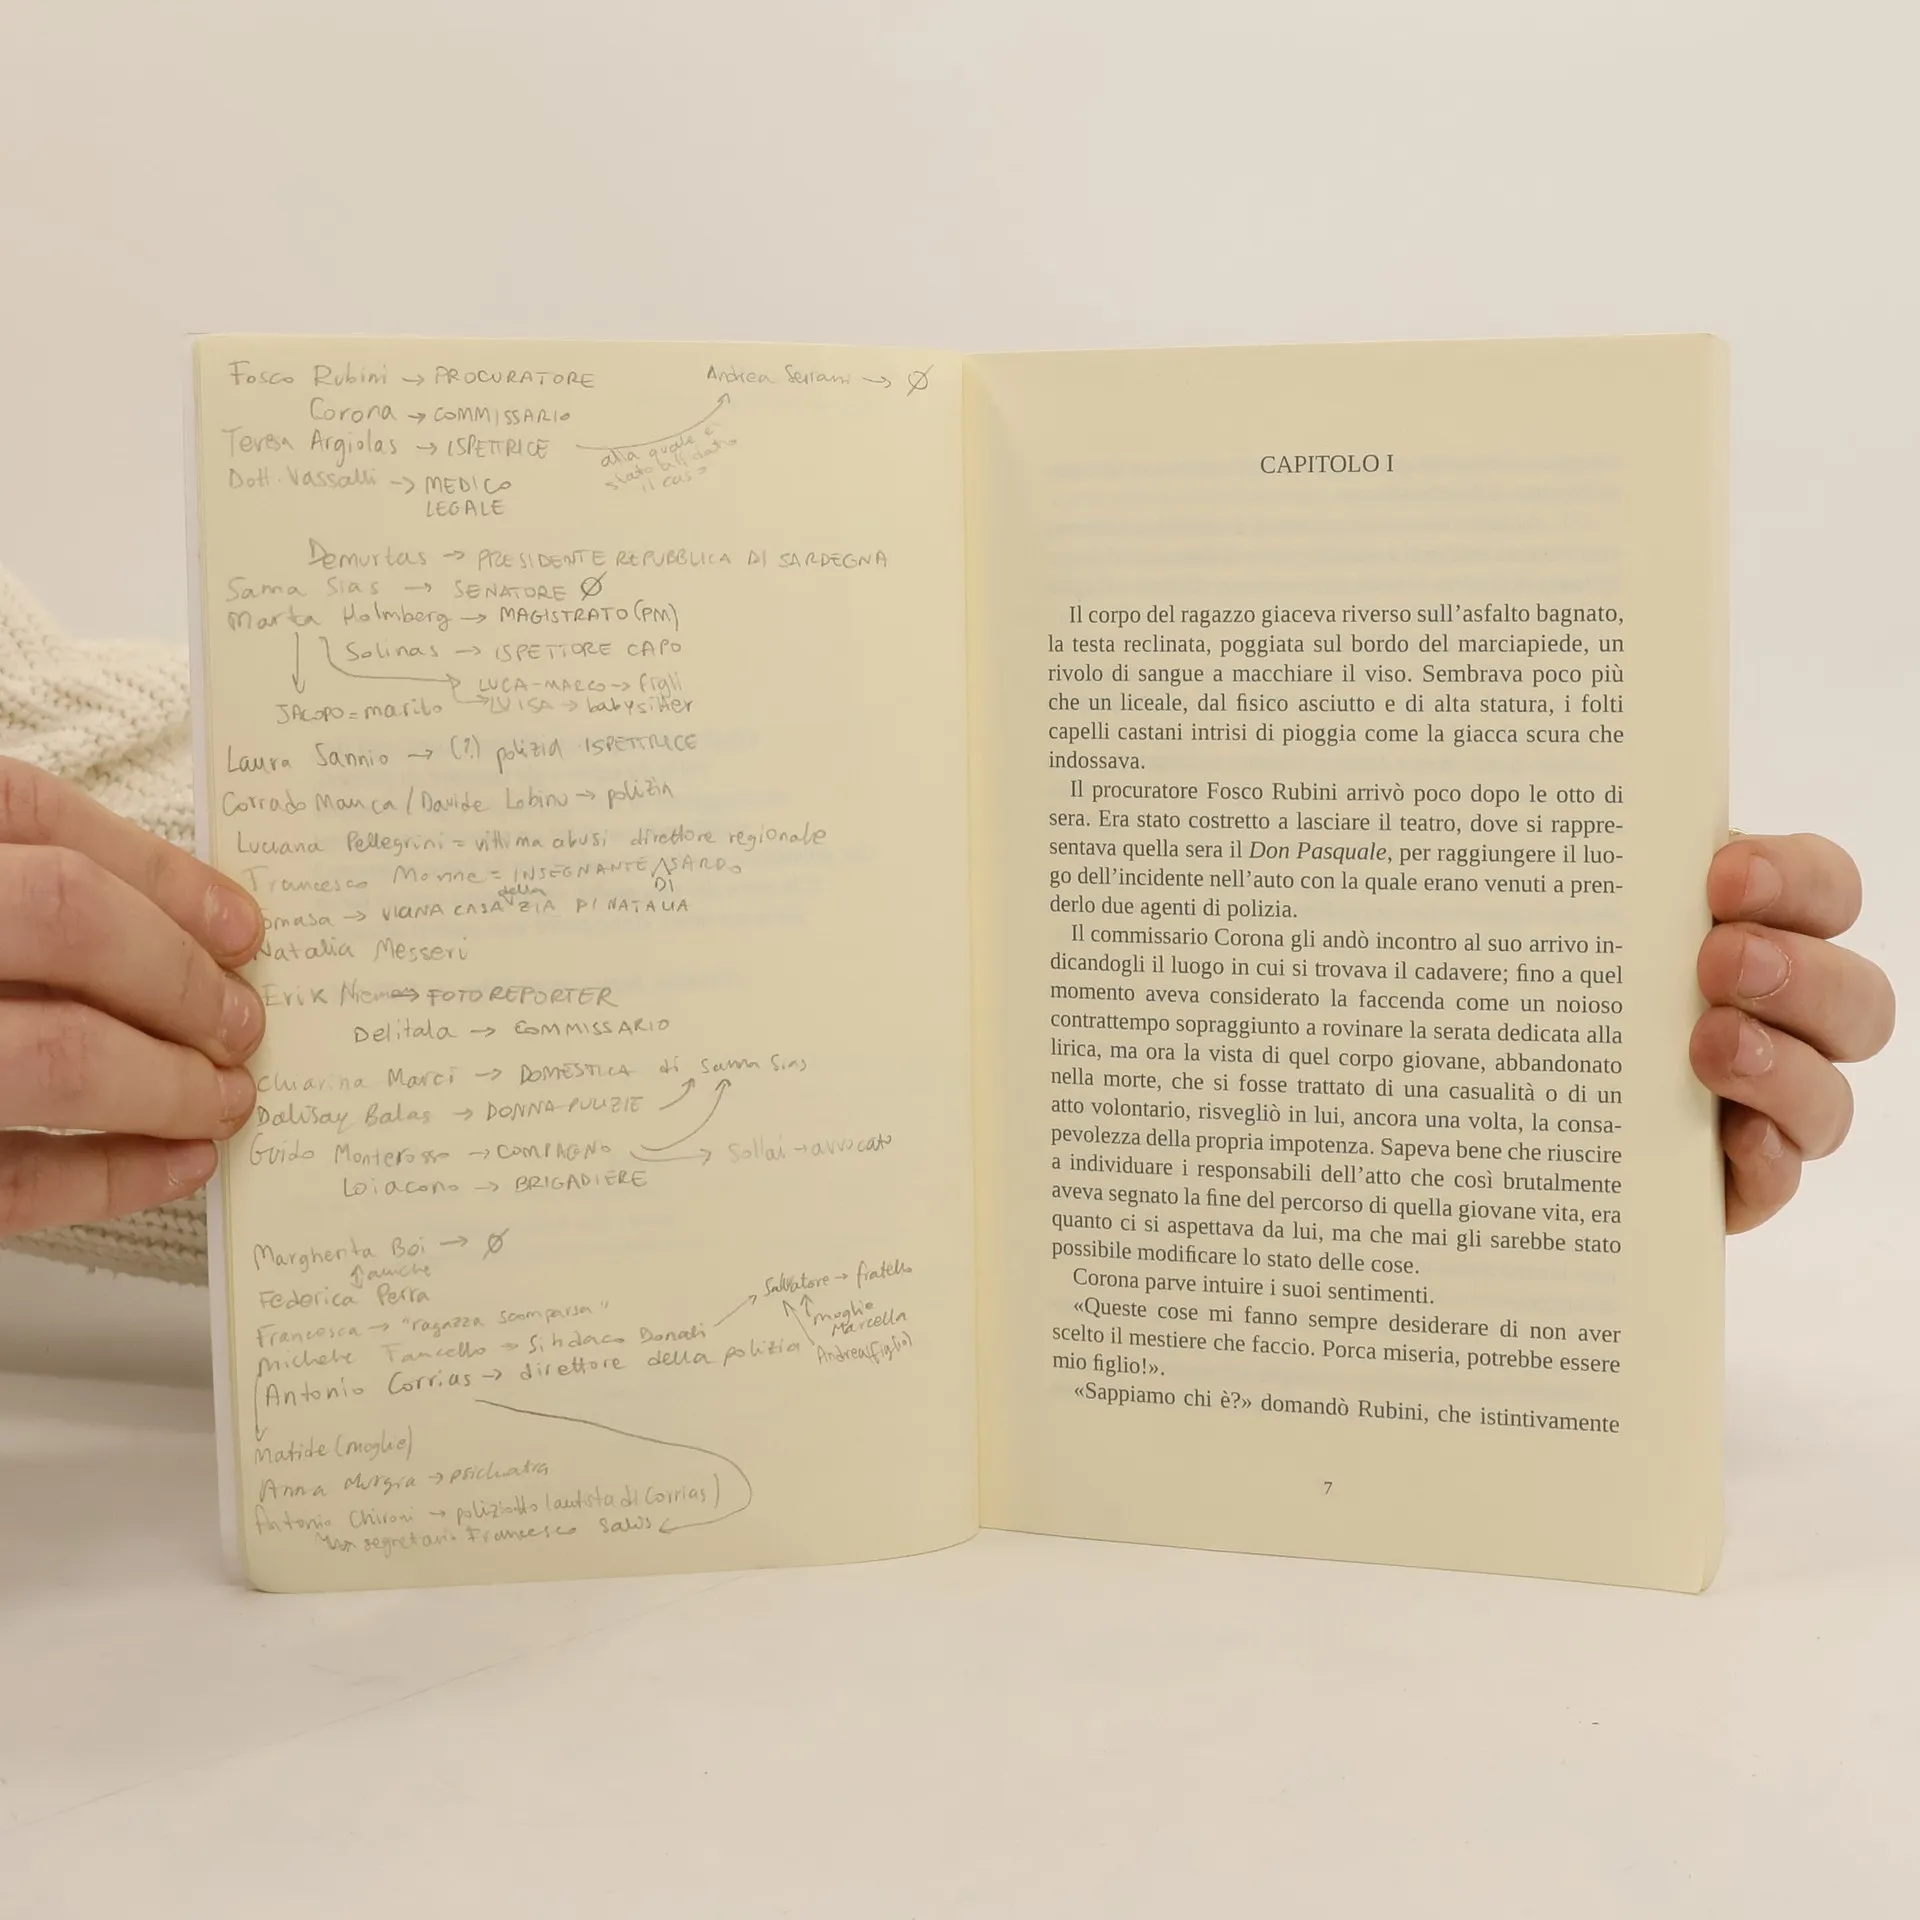 Fosco Rubini → PROCURATORE
Andrea Serrani → Ø
Corona → COMMISSARIO
Teresa Argiolas → ISPETTRICE
alla quale è
stato affidato
il caso
Dott. Vassalli → MEDICO
LEGALE
Demurtas → PRESIDENTE REPUBBLICA DI SARDEGNA
Sanna Sias → SENATORE Ø
Marta Holmberg → MAGISTRATO (PM)
Solinas → ISPETTORE CAPO
LUCA-MARCO → figli
JACOPO = marito
LUISA → babysitter
Laura Sannio → (?) polizia ISPETTRICE
Corrado Manca / Davide Lobinu → polizia
Luciana Pellegrini = vittima abusi direttore regionale
Francesco Monne = INSEGNANTE DI SARDO
Tomasa → VICINA CASA della ZIA DI NATALIA
Natalia Messeri
Erik → FOTOREPORTER
Delitala → COMMISSARIO
Chiarina Marci → DOMESTICA di Sanna Sias
Dalisay Balas → DONNA PULIZIE
Guido Monterosso → COMPAGNO → Sollai → avvocato
Loiacono → BRIGADIERE
Margherita Boi → Ø
amiche
Federica Perra
Francesca → "ragazza scomparsa"
Michele Fancello → Sindaco Donali → Salvatore → fratello
moglie
Marcella
Andrea (figlio)
Antonio Corrias → direttore della polizia
Matilde (moglie)
Anna Murgia → psichiatra
Antonio Chironi → poliziotto (autista di Corrias)
segretario Francesco Salis
CAPITOLO I
Il corpo del ragazzo giaceva riverso sull'asfalto bagnato,
la testa reclinata, poggiata sul bordo del marciapiede, un
rivolo di sangue a macchiare il viso. Sembrava poco più
che un liceale, dal fisico asciutto e di alta statura, i folti
capelli castani intrisi di pioggia come la giacca scura che
indossava.
Il procuratore Fosco Rubini arrivò poco dopo le otto di
sera. Era stato costretto a lasciare il teatro, dove si rappre-
sentava quella sera il Don Pasquale, per raggiungere il luo-
go dell'incidente nell'auto con la quale erano venuti a pren-
derlo due agenti di polizia.
Il commissario Corona gli andò incontro al suo arrivo in-
dicandogli il luogo in cui si trovava il cadavere; fino a quel
momento aveva considerato la faccenda come un noioso
contrattempo sopraggiunto a rovinare la serata dedicata alla
lirica, ma ora la vista di quel corpo giovane, abbandonato
nella morte, che si fosse trattato di una casualità o di un
atto volontario, risvegliò in lui, ancora una volta, la consa-
pevolezza della propria impotenza. Sapeva bene che riuscire
a individuare i responsabili dell'atto che così brutalmente
aveva segnato la fine del percorso di quella giovane vita, era
quanto ci si aspettava da lui, ma che mai gli sarebbe stato
possibile modificare lo stato delle cose.
Corona parve intuire i suoi sentimenti.
«Queste cose mi fanno sempre desiderare di non aver
scelto il mestiere che faccio. Porca miseria, potrebbe essere
mio figlio!».
«Sappiamo chi è?» domandò Rubini, che istintivamente
7